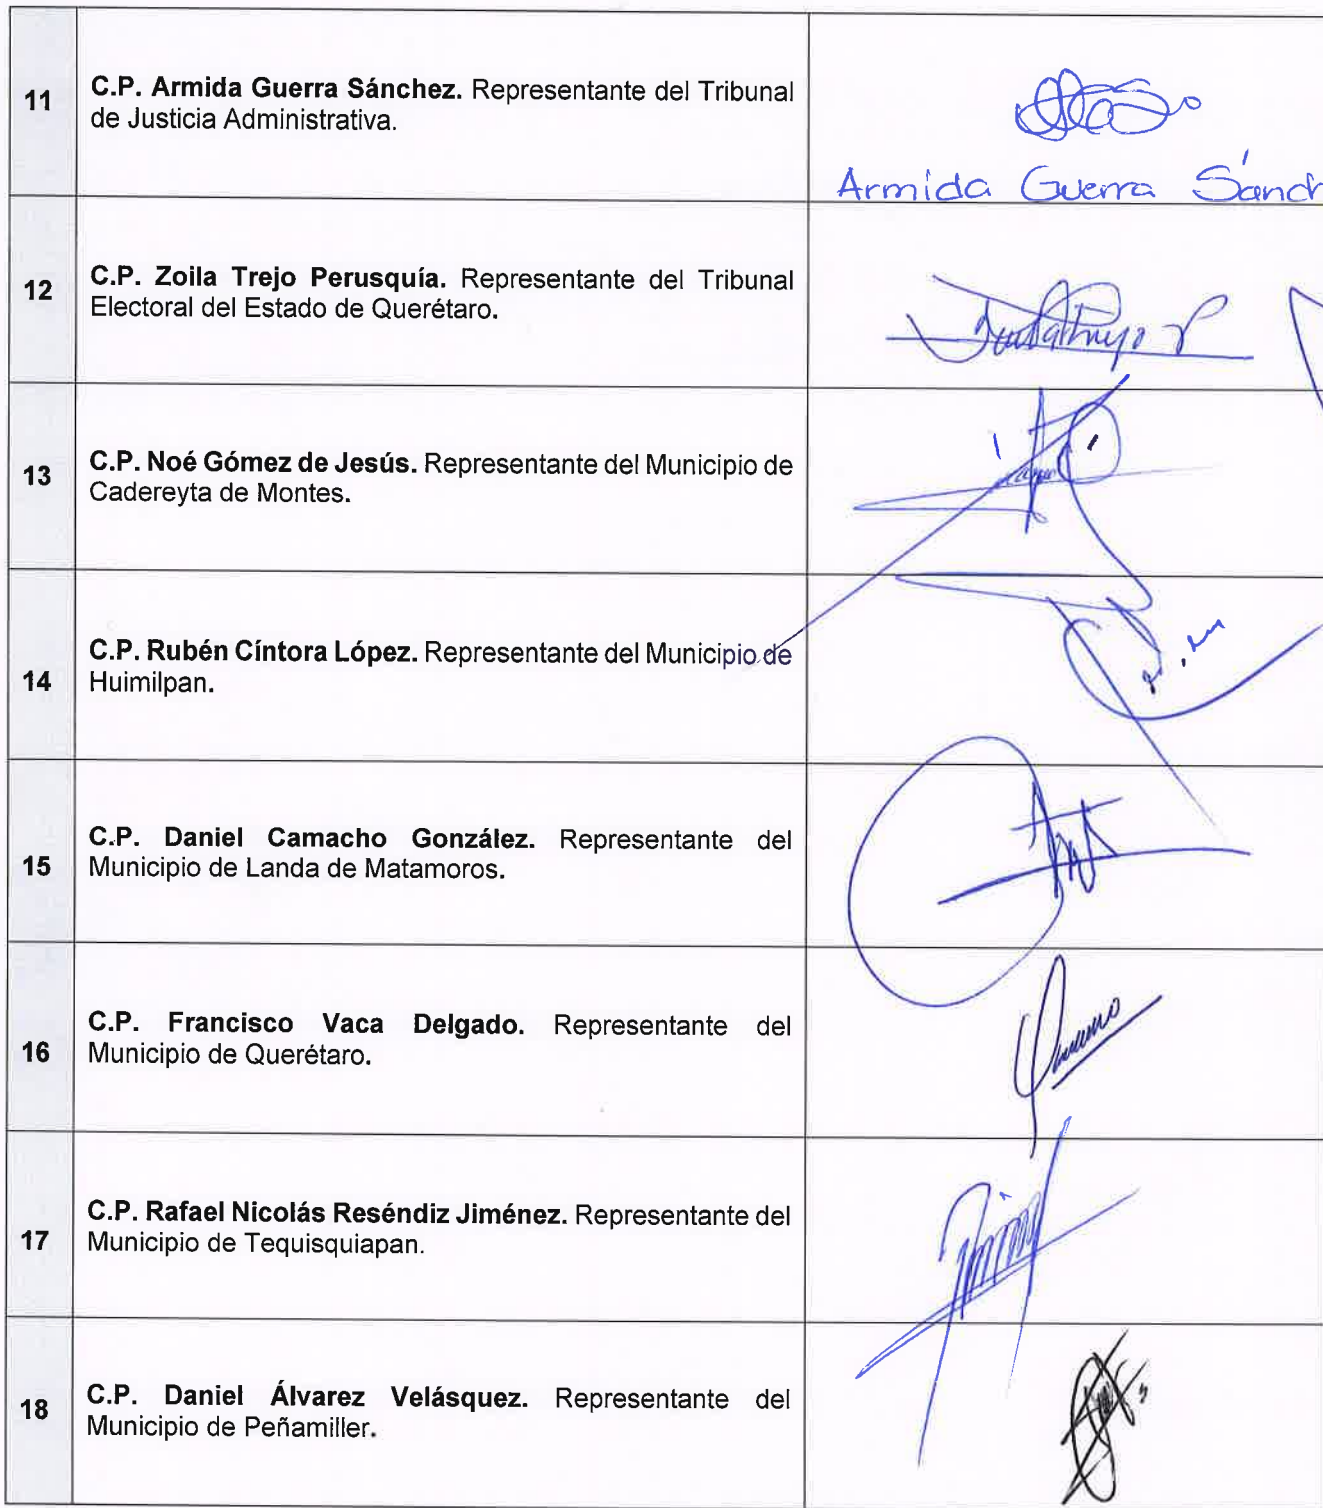 11
C.P. Armida Guerra Sánchez. Representante del Tribunal
de Justicia Administrativa.
Armida Guerra Sánch
12
C.P. Zoila Trejo Perusquía. Representante del Tribunal
Electoral del Estado de Querétaro.
13
C.P. Noé Gómez de Jesús. Representante del Municipio de
Cadereyta de Montes.
14
C.P. Rubén Cíntora López. Representante del Municipio de
Huimilpan.
15
C.P. Daniel Camacho González. Representante del
Municipio de Landa de Matamoros.
16
C.P. Francisco Vaca Delgado. Representante del
Municipio de Querétaro.
17
C.P. Rafael Nicolás Reséndiz Jiménez. Representante del
Municipio de Tequisquiapan.
18
C.P. Daniel Álvarez Velásquez. Representante del
Municipio de Peñamiller.